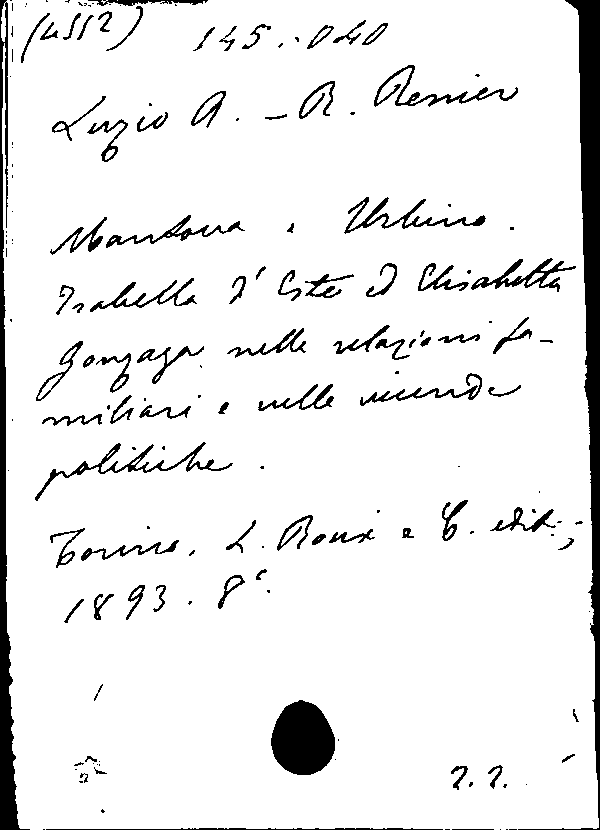 (4552) 145.-040
Luzio A. - R. Renier
Mantova e Urbino.
Isabella d'Este ed Elisabetta
Gonzaga nelle relazioni fa-
miliari e nelle vicende
politiche.
Torino, L. Roux e C. edit.,
1893. 8º.